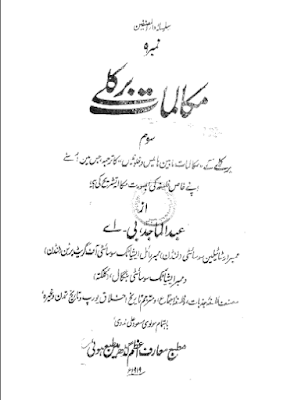 سلسلہ دار المصنفین
نمبر ۹
مکالمات برکلے
موسوم
برکلے کے مکالمات مابین ہائیلس و فلونوس کا ترجمہ جس میں اُسنے
اپنے خاص فلسفہ کی بصورت مکالمہ تشریح کی ہے
از
عبد الماجد بی۔ اے
ممبر ارسٹاٹیلین سوسائٹی (لندن) ممبر رائل ایشیاٹک سوسائٹی آف گریٹ برٹین (لندن)
و ممبر ایشیاٹک سوسائٹی بنگال (کلکتہ)
مصنف فلسفۂ جذبات، فلسفۂ اجتماع، و مترجم تاریخ اخلاق یورپ و تاریخ تمدن وغیرہ
باہتمام مولوی مسعود علی ندوی
مطبع معارف اعظم گڈھ میں طبع ہوئی
۱۹۱۹ء